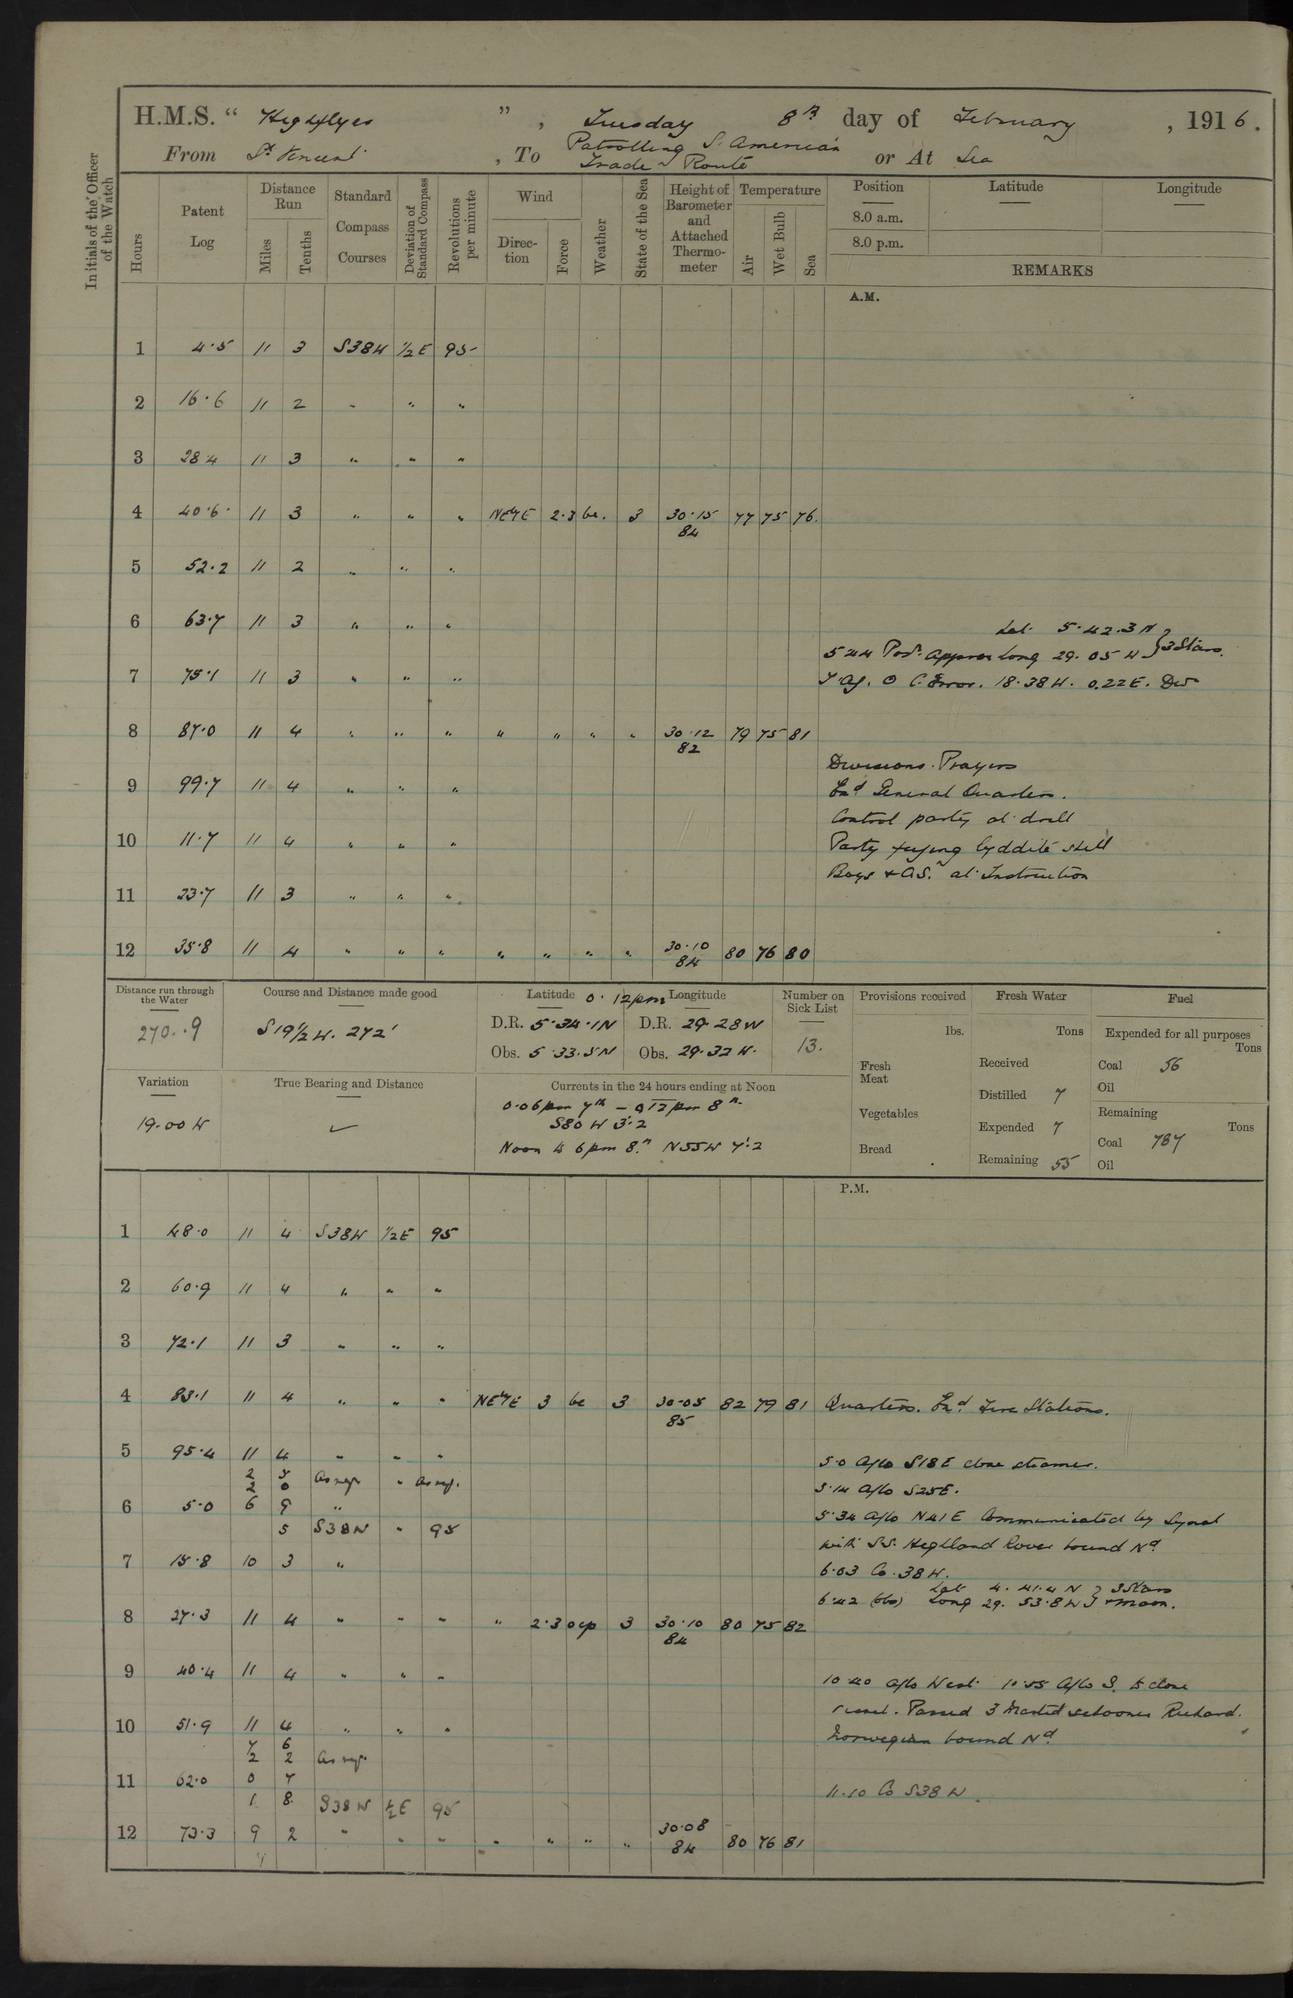 H.M.S. " Highflyer " , Tuesday 8th day of February , 1916 .
From St Vincent , To Patrolling S. American Trade Route or At Sea
Initials of the Officer of the Watch
Hours Patent Log Distance Run Miles Tenths Standard Compass Courses Deviation of Standard Compass Revolutions per minute Wind Direc-tion Force Weather State of the Sea Height of Barometer and Attached Thermo-meter Temperature Air Wet Bulb Sea Position Latitude Longitude
8.0 a.m.
8.0 p.m.
REMARKS
A.M.
1 4.5 11 3 S38W 1/2 E 95
2 16.6 11 2 " " "
3 28.4 11 3 " " "
4 40.6 11 3 " " " NE'ly E 2.3 bc. 3 30.15 84 77 75 76
5 52.2 11 2 " " "
6 63.7 11 3 " " "
Lat. 5.42.3 N } 3 Stars.
5 44 Posn. approx Long 29.05 W
7 75.1 11 3 " " " 7 Az. ☉ C. Error. 18.38 W. 0.22 E. Dev
8 87.0 11 4 " " " " " " " 30.12 82 79 75 81
Divisions. Prayers
9 99.7 11 4 " " " Exd General Quarters.
Control party at drill
10 11.7 11 4 " " " Party fuzing lyddite shell
Boys & O.S. at Instruction
11 23.7 11 3 " " "
12 35.8 11 4 " " " " " " " 30.10 84 80 76 80
Distance run through the Water Course and Distance made good Latitude 0.12 pm Longitude Number on Sick List Provisions received Fresh Water Fuel
270.9 S 19 1/2 W. 272' D.R. 5.34.1N D.R. 29.28W 13. lbs. Tons Expended for all purposes Tons
Obs. 5.33.5N Obs. 29.32 W. Fresh Meat Received Coal 56
Oil
Variation True Bearing and Distance Currents in the 24 hours ending at Noon Distilled 7
19.00 W ✓ 0.06 pm 7th – 0.12 pm 8th Vegetables Expended 7 Remaining Tons
S80 W 3'.2 Coal 787
Noon to 6 pm 8th N55W 7'.2 Bread Remaining 55 Oil
P.M.
1 48.0 11 4 S38W 1/2 E 95
2 60.9 11 4 " " "
3 72.1 11 3 " " "
4 83.1 11 4 " " " NE'ly E 3 bc 3 30.05 85 82 79 81 Quarters. Exd Fire Stations.
5 95.4 11 4 " " " 5.0 A/co S18E close steamer.
2 7 As req. " As req. 5.14 A/co S25E.
2 0
6 5.0 6 9 " 5.34 A/co N41E Communicated by Signal
5 S38W " 95 with S.S. Highland Rover bound Nd
7 15.8 10 3 " 6.03 Co. 38W.
6.42 (obs) Lat 4.41.4 N Long 29.53.8 W } 3 Stars + moon.
8 27.3 11 4 " " " " 2.3 ocp 3 30.10 84 80 75 82
9 40.4 11 4 " " " 10.40 A/co West. 10.55 A/co S. to close
10 51.9 11 4 " " " vessel. Passed 3 Masted schooner Richard.
7 6 Norwegian bound Nd.
2 2 As req.
11 62.0 0 7 11.10 Co S38W.
1 8 S38W 1/2 E 95
12 73.3 9 2 " " " " " " " 30.08 84 80 76 81